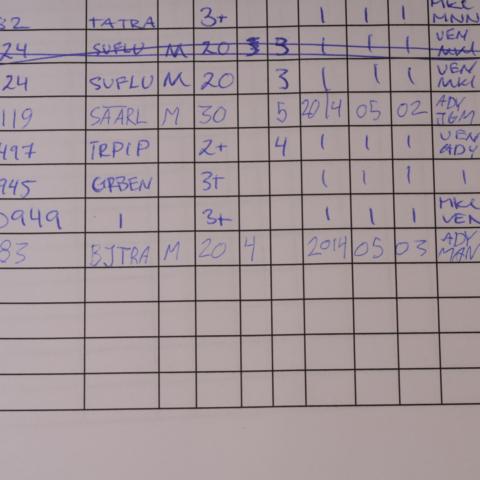 32 TATRA 3+ 1 1 1 MKL MNN
24 SUFLU M 20 3 3 1 1 1 VEN MKL
24 SUFLU M 20 3 1 1 1 VEN MKL
119 SAARL M 30 5 2014 05 02 ADY
497 TRPIP 2+ 4 1 1 1 VEN ADY
945 GRBEN 3+ 1 1 1 1
0949 1 3+ 1 1 1 MKL VEN
83 BJTRA M 20 4 2014 05 03 ADY MAN